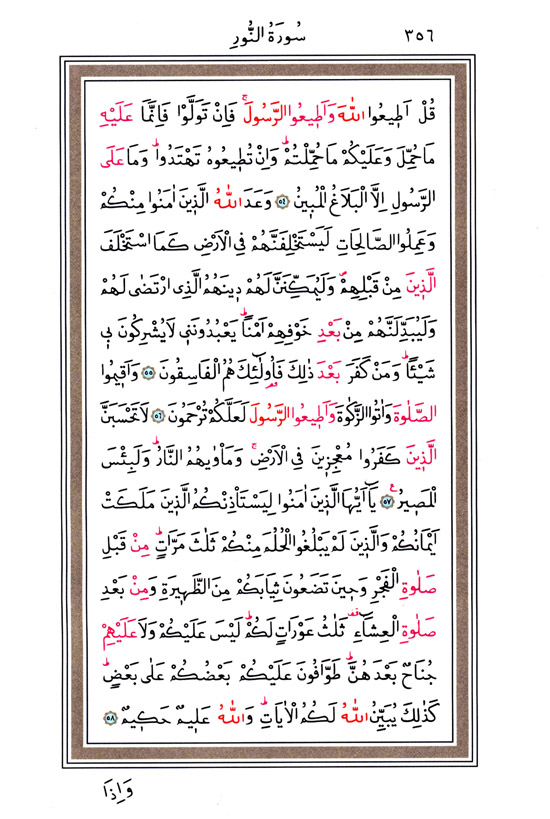 ٣٥٦
سُورَةُ النُّورِ
قُلْ اَطٖيعُوا اللّٰهَ وَاَطٖيعُوا الرَّسُولَۚ فَاِنْ تَوَلَّوْا فَاِنَّمَا عَلَيْهِ
مَا حُمِّلَ وَعَلَيْكُمْ مَا حُمِّلْتُمْؕ وَاِنْ تُطٖيعُوهُ تَهْتَدُواؕ وَمَا عَلَى
الرَّسُولِ اِلَّا الْبَلَاغُ الْمُبٖينُ ﴿٥٤﴾ وَعَدَ اللّٰهُ الَّذٖينَ اٰمَنُوا مِنْكُمْ
وَعَمِلُوا الصَّالِحَاتِ لَيَسْتَخْلِفَنَّهُمْ فِي الْاَرْضِ كَمَا اسْتَخْلَفَ
الَّذٖينَ مِنْ قَبْلِهِمْࣕ وَلَيُمَكِّنَنَّ لَهُمْ دٖينَهُمُ الَّذِي ارْتَضٰى لَهُمْ
وَلَيُبَدِّلَنَّهُمْ مِنْ بَعْدِ خَوْفِهِمْ اَمْنًاؕ يَعْبُدُونَنٖي لَا يُشْرِكُونَ بٖي
شَيْـًٔاؕ وَمَنْ كَفَرَ بَعْدَ ذٰلِكَ فَاُو۬لٰٓئِكَ هُمُ الْفَاسِقُونَ ﴿٥٥﴾ وَاَقٖيمُوا
الصَّلٰوةَ وَاٰتُوا الزَّكٰوةَ وَاَطٖيعُوا الرَّسُولَ لَعَلَّكُمْ تُرْحَمُونَ ﴿٥٦﴾ لَا تَحْسَبَنَّ
الَّذٖينَ كَفَرُوا مُعْجِزٖينَ فِي الْاَرْضِۚ وَمَأْوٰيهُمُ النَّارُؕ وَلَبِئْسَ
الْمَصٖيرُࣖ ﴿٥٧﴾ يَٓا اَيُّهَا الَّذٖينَ اٰمَنُوا لِيَسْتَأْذِنْكُمُ الَّذٖينَ مَلَكَتْ
اَيْمَانُكُمْ وَالَّذٖينَ لَمْ يَبْلُغُوا الْحُلُمَ مِنْكُمْ ثَلٰثَ مَرَّاتٍؕ مِنْ قَبْلِ
صَلٰوةِ الْفَجْرِ وَحٖينَ تَضَعُونَ ثِيَابَكُمْ مِنَ الظَّهٖيرَةِ وَمِنْ بَعْدِ
صَلٰوةِ الْعِشَٓاءِࣞ ثَلٰثُ عَوْرَاتٍ لَكُمْؕ لَيْسَ عَلَيْكُمْ وَلَا عَلَيْهِمْ
جُنَاحٌ بَعْدَهُنَّؕ طَوَّافُونَ عَلَيْكُمْ بَعْضُكُمْ عَلٰى بَعْضٍؕ
كَذٰلِكَ يُبَيِّنُ اللّٰهُ لَكُمُ الْاٰيَاتِؕ وَاللّٰهُ عَلٖيمٌ حَكٖيمٌ ﴿٥٨﴾
وَاِذَا